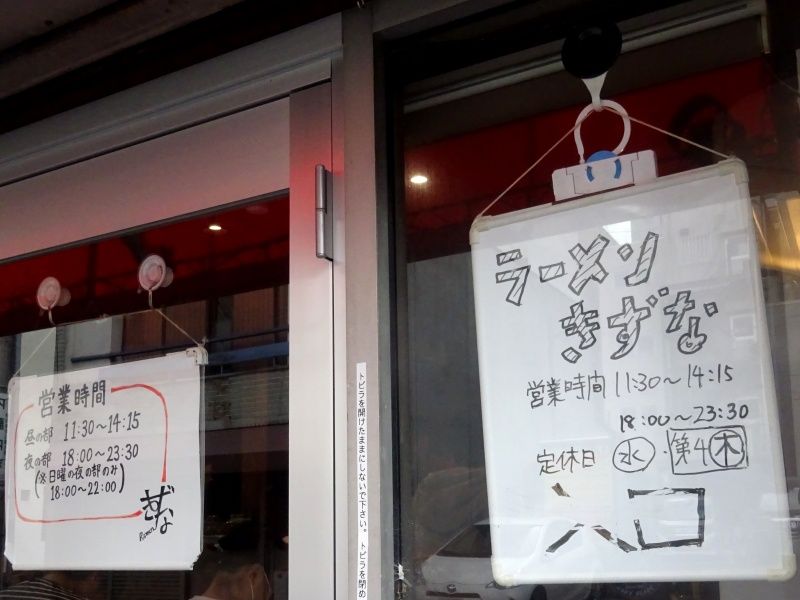 営業時間
昼の部 11:30〜14:15
夜の部 18:00〜23:30
(※日曜の夜の部のみ
18:00〜22:00)
きずな
Ramen
トビラを開けたままにしないで下さい。 トビラを閉め
ラーメン
きずな
営業時間 11:30〜14:15
18:00〜23:30
定休日 水・第4木
入口